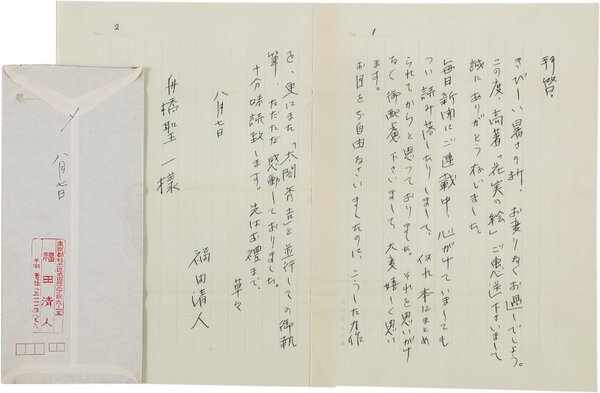 1
拝啓、
きびしい暑さの折、お変りなくお過しでしょう。
この度、高著「花実の絵」ご恵送下さいまして
誠にありがとう存じました。
毎日新聞にご連載中、心がけていましても
つい読み落したりしまして、何れ本にまとめ
られてからと思っておりました。それを思いがけ
なく御配慮下さいまして、大変嬉しく思い
ます。
お目をご不自由なさいましたのに、こうした力作
2
を、更にまた「太閤秀吉」と並行しての御執
筆、ただただ感動しておりました。
十分味読致します。先はお礼まで、
草々
八月七日
福田清人
舟橋聖一様
八月七日
福田清人